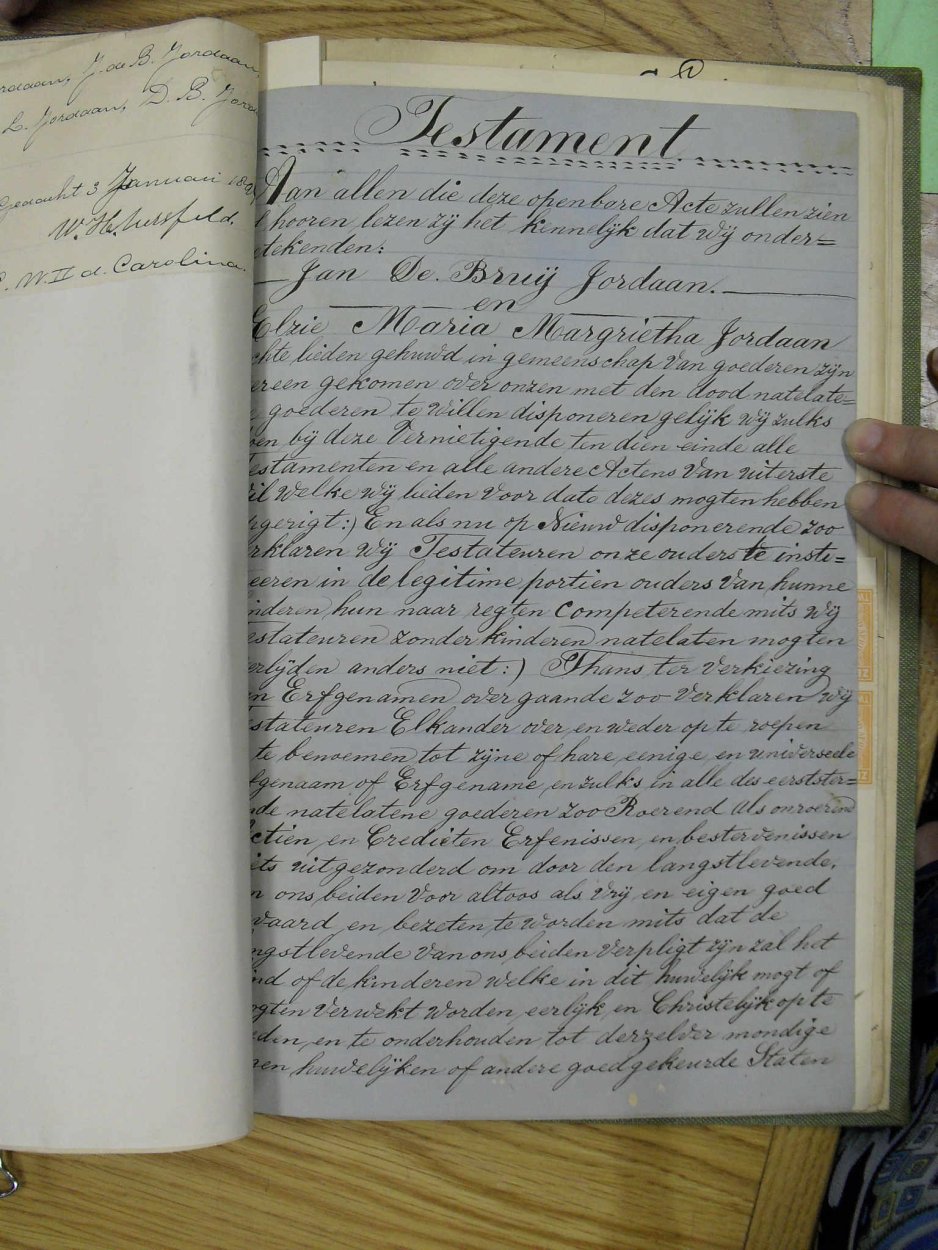 Jordaan, J. de B. Jordaan,
L. Jordaan, D. B.
Gedacht 3 Januari
d. Carolina.
Testament
Aan allen die deze openbare Acte zullen zien
hooren lezen zÿ het kennelÿk dat wÿ onder=
tekenden:
Jan De. Bruÿ Jordaan.
en
Elzie Maria Margrietha Jordaan
chte lieden gehuwd in gemeenschap van goederen zÿn
ereen gekomen over onzen met den dood natelate=
goederen te willen disponeren gelÿk wÿ zulks
oen bÿ deze Vernietigende ten dien einde alle
estamenten en alle andere Actens van uiterste
il welke wÿ lieden voor dato dezes mogten hebben
pgerigt:) En als nu op Nieuw disponerende zoo
erklaren wÿ Testateuren onze ouders te insti=
eeren in de legitime portien ouders van hunne
nderen hun naar regten Competerende mits wÿ
estateuren zonder kinderen natelaten mogten
erlÿden anders niet:) Thans ter verkiezing
n Erfgenamen over gaande zoo verklaren wÿ
stateuren Elkander over en weder op te roepen
te benoemen tot zÿne of hare eenige en universeele
fgenaam of Erfgename en zulks in alle des eerstster=
nde natelatene goederen zoo Roerend als onroerend
ctien en Credieten Erfenissen en bestervenissen
iets uitgezonderd om door den langstlevende,
n ons beiden voor altoos als vrÿ en eigen goed
vaard en bezeten te worden mits dat de
ngstlevende van ons beiden verpligt zÿn zal het
nd of de kinderen welke in dit huwelÿk mogt of
ogten verwekt worden eerlÿk en Christelÿk op te
eden en te onderhouden tot derzelver mondige
ren huwelÿken of andere goedgekeurde Staten